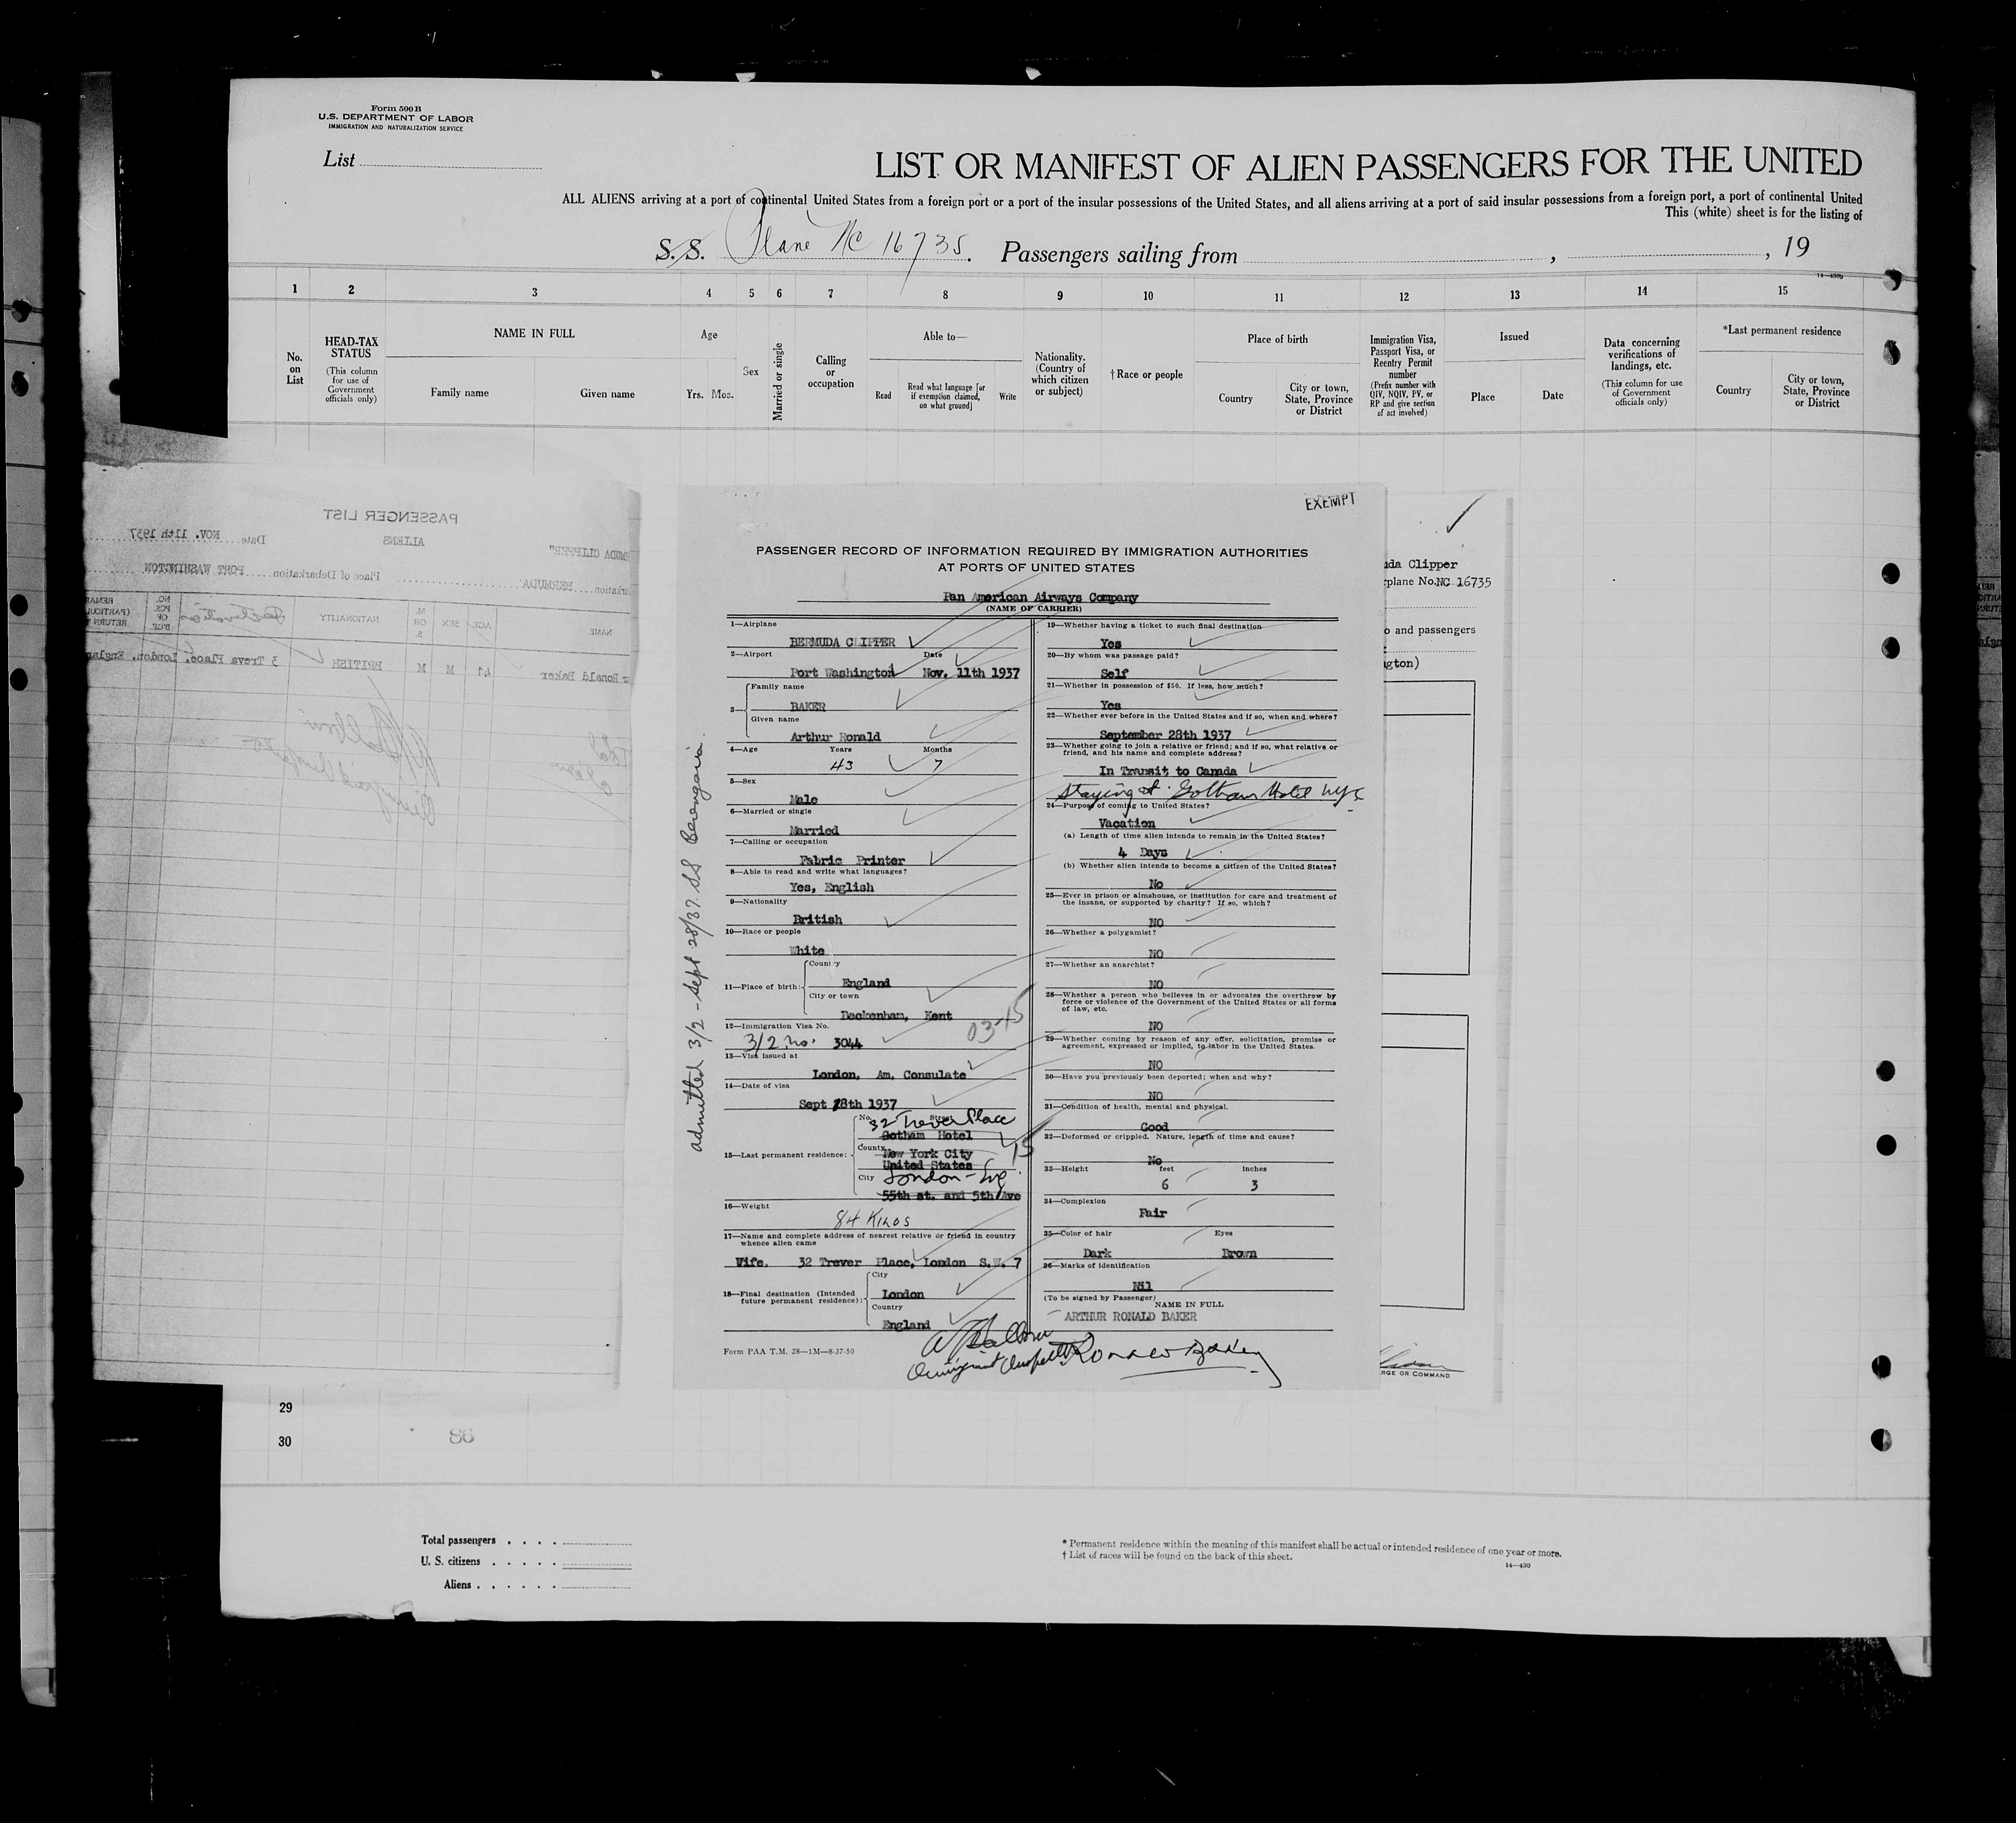 Form 500 B
U.S. DEPARTMENT OF LABOR
IMMIGRATION AND NATURALIZATION SERVICE
List
LIST OR MANIFEST OF ALIEN PASSENGERS FOR THE UNITED
ALL ALIENS arriving at a port of continental United States from a foreign port or a port of the insular possessions of the United States, and all aliens arriving at a port of said insular possessions from a foreign port, a port of continental United
This (white) sheet is for the listing of
S.S. Plane NC 16735. Passengers sailing from , , 19
14—430
1 2 3 4 5 6 7 8 9 10 11 12 13 14 15
No. on List
HEAD-TAX STATUS
(This column for use of Government officials only)
NAME IN FULL
Family name Given name
Age
Yrs. Mos.
Sex
Married or single
Calling or occupation
Able to—
Read Read what language [or if exemption claimed, on what ground] Write
Nationality. (Country of which citizen or subject)
† Race or people
Place of birth
Country City or town, State, Province or District
Immigration Visa, Passport Visa, or Reentry Permit number
(Prefix number with QIV, NQIV, PV, or RP and give section of act involved)
Issued
Place Date
Data concerning verifications of landings, etc.
(This column for use of Government officials only)
*Last permanent residence
Country City or town, State, Province or District
PASSENGER LIST
ALIENS Date NOV. 11th 1937
BERMUDA Place of Debarkation PORT WASHINGTON
NAME AGE SEX M. OR S. NATIONALITY Destination NO. PCS. OF B'G'E
Ronald Baker 41 M M BRITISH 3 Treva Place, London, England
EXEMPT
PASSENGER RECORD OF INFORMATION REQUIRED BY IMMIGRATION AUTHORITIES
AT PORTS OF UNITED STATES
Pan American Airways Company
(NAME OF CARRIER)
1—Airplane
BERMUDA CLIPPER
2—Airport Date
Port Washington Nov. 11th 1937
3— Family name
BAKER
Given name
Arthur Ronald
4—Age Years Months
43 7
5—Sex
Male
6—Married or single
Married
7—Calling or occupation
Fabric Printer
8—Able to read and write what languages?
Yes, English
9—Nationality
British
10—Race or people
White
11—Place of birth: Country
England
City or town
Beckenham, Kent
03-15
12—Immigration Visa No.
3/2 No. 3044
13—Visa issued at
London, Am. Consulate
14—Date of visa
Sept 28th 1937
No. Street
32 Trever Place
Gotham Hotel
15
15—Last permanent residence:
County
New York City
United States
City London - Eng
55th st. and 5th Ave
16—Weight
84 Kilos
17—Name and complete address of nearest relative or friend in country
whence alien came
Wife. 32 Trever Place, London S.W. 7
18—Final destination (Intended future permanent residence):
City
London
Country
England
Form PAA T.M. 28—1M—8-37-50
admitted 3/2 - Sept 28/37 SS Berengaria.
19—Whether having a ticket to such final destination
Yes
20—By whom was passage paid?
Self
21—Whether in possession of $50. If less, how much?
Yes
22—Whether ever before in the United States and if so, when and where?
September 28th 1937
23—Whether going to join a relative or friend; and if so, what relative or
friend, and his name and complete address?
In Transit to Canada
Staying at Gotham Hotel NYC
24—Purpose of coming to United States?
Vacation
(a) Length of time alien intends to remain in the United States?
4 Days
(b) Whether alien intends to become a citizen of the United States?
No
25—Ever in prison or almshouse, or institution for care and treatment of
the insane, or supported by charity? If so, which?
NO
26—Whether a polygamist?
NO
27—Whether an anarchist?
NO
28—Whether a person who believes in or advocates the overthrow by
force or violence of the Government of the United States or all forms
of law, etc.
NO
29—Whether coming by reason of any offer, solicitation, promise or
agreement, expressed or implied, to labor in the United States.
NO
30—Have you previously been deported; when and why?
NO
31—Condition of health, mental and physical.
Good
32—Deformed or crippled. Nature, length of time and cause?
No
33—Height feet inches
6 3
34—Complexion
Fair
35—Color of hair Eyes
Dark Brown
36—Marks of identification
Nil
(To be signed by Passenger)
NAME IN FULL
ARTHUR RONALD BAKER
Immigrant Inspector
Ronald Baker
uda Clipper
rplane No. NC 16735
o and passengers
gton)
RGE OR COMMAND
29
30
86
Total passengers . . . .
U. S. citizens . . . . .
Aliens . . . . . .
* Permanent residence within the meaning of this manifest shall be actual or intended residence of one year or more.
† List of races will be found on the back of this sheet.
14—430